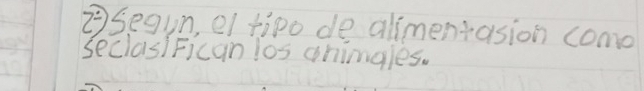 2) Segun, el tipo de alimentasion como
seclasifican los animales.